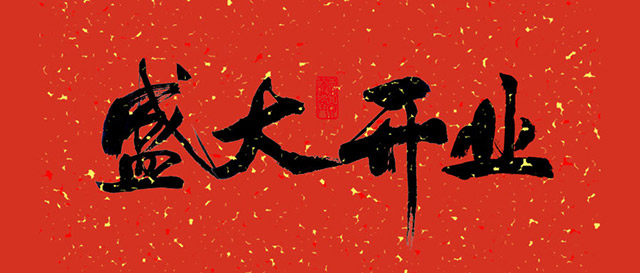 盛大开业